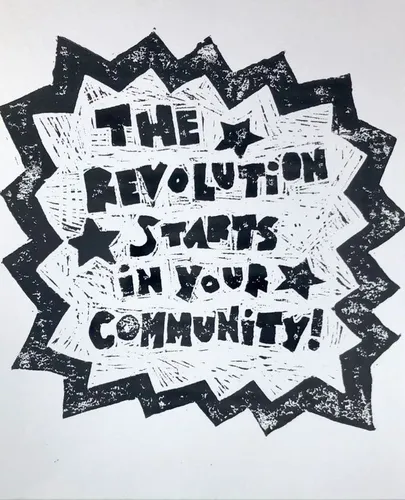 THE
REVOLUTiON
STARTS
iN YOUR
COMMUNiTY!